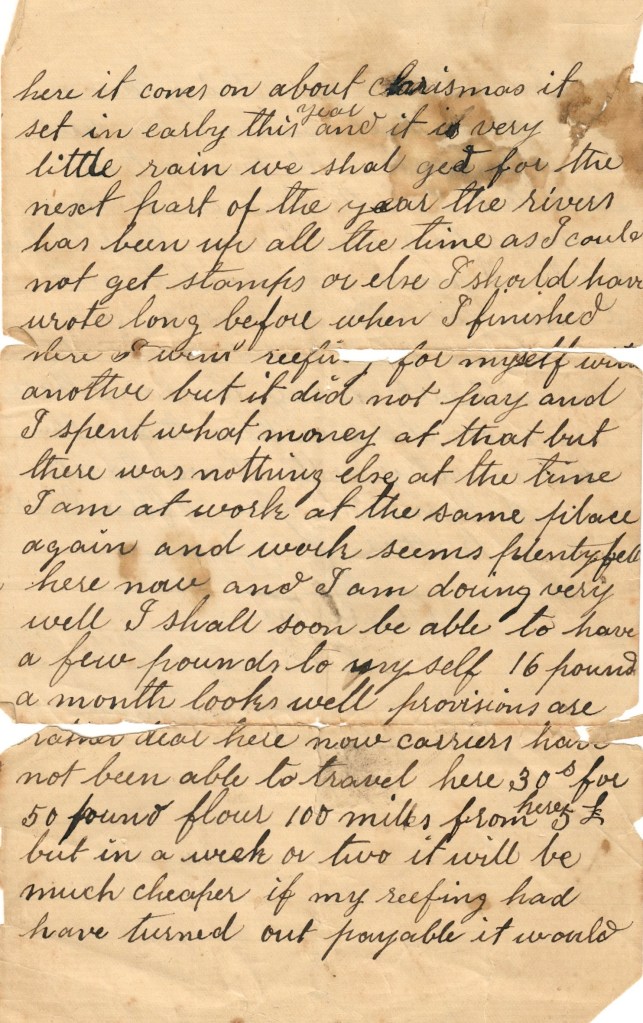 here it comes on about chrismas it
set in early this year and it is very
little rain we shal ged for the
next part of the year the rivers
has been up all the time as I could
not get stamps or else I should have
wrote long before when I finished
here I went reefing for myself with
another but it did not pay and
I spent what money at that but
there was nothing else at the time
I am at work at the same place
again and work seems plentyfell
here now and I am doing very
well I shall soon be able to have
a few pounds to my self 16 pound
a month looks well provisions are
rather dear here now carriers have
not been able to travel here 30s for
50 pound flour 100 miles from here 5
but in a week or two it will be
much cheaper if my reefing had
have turned out payable it would